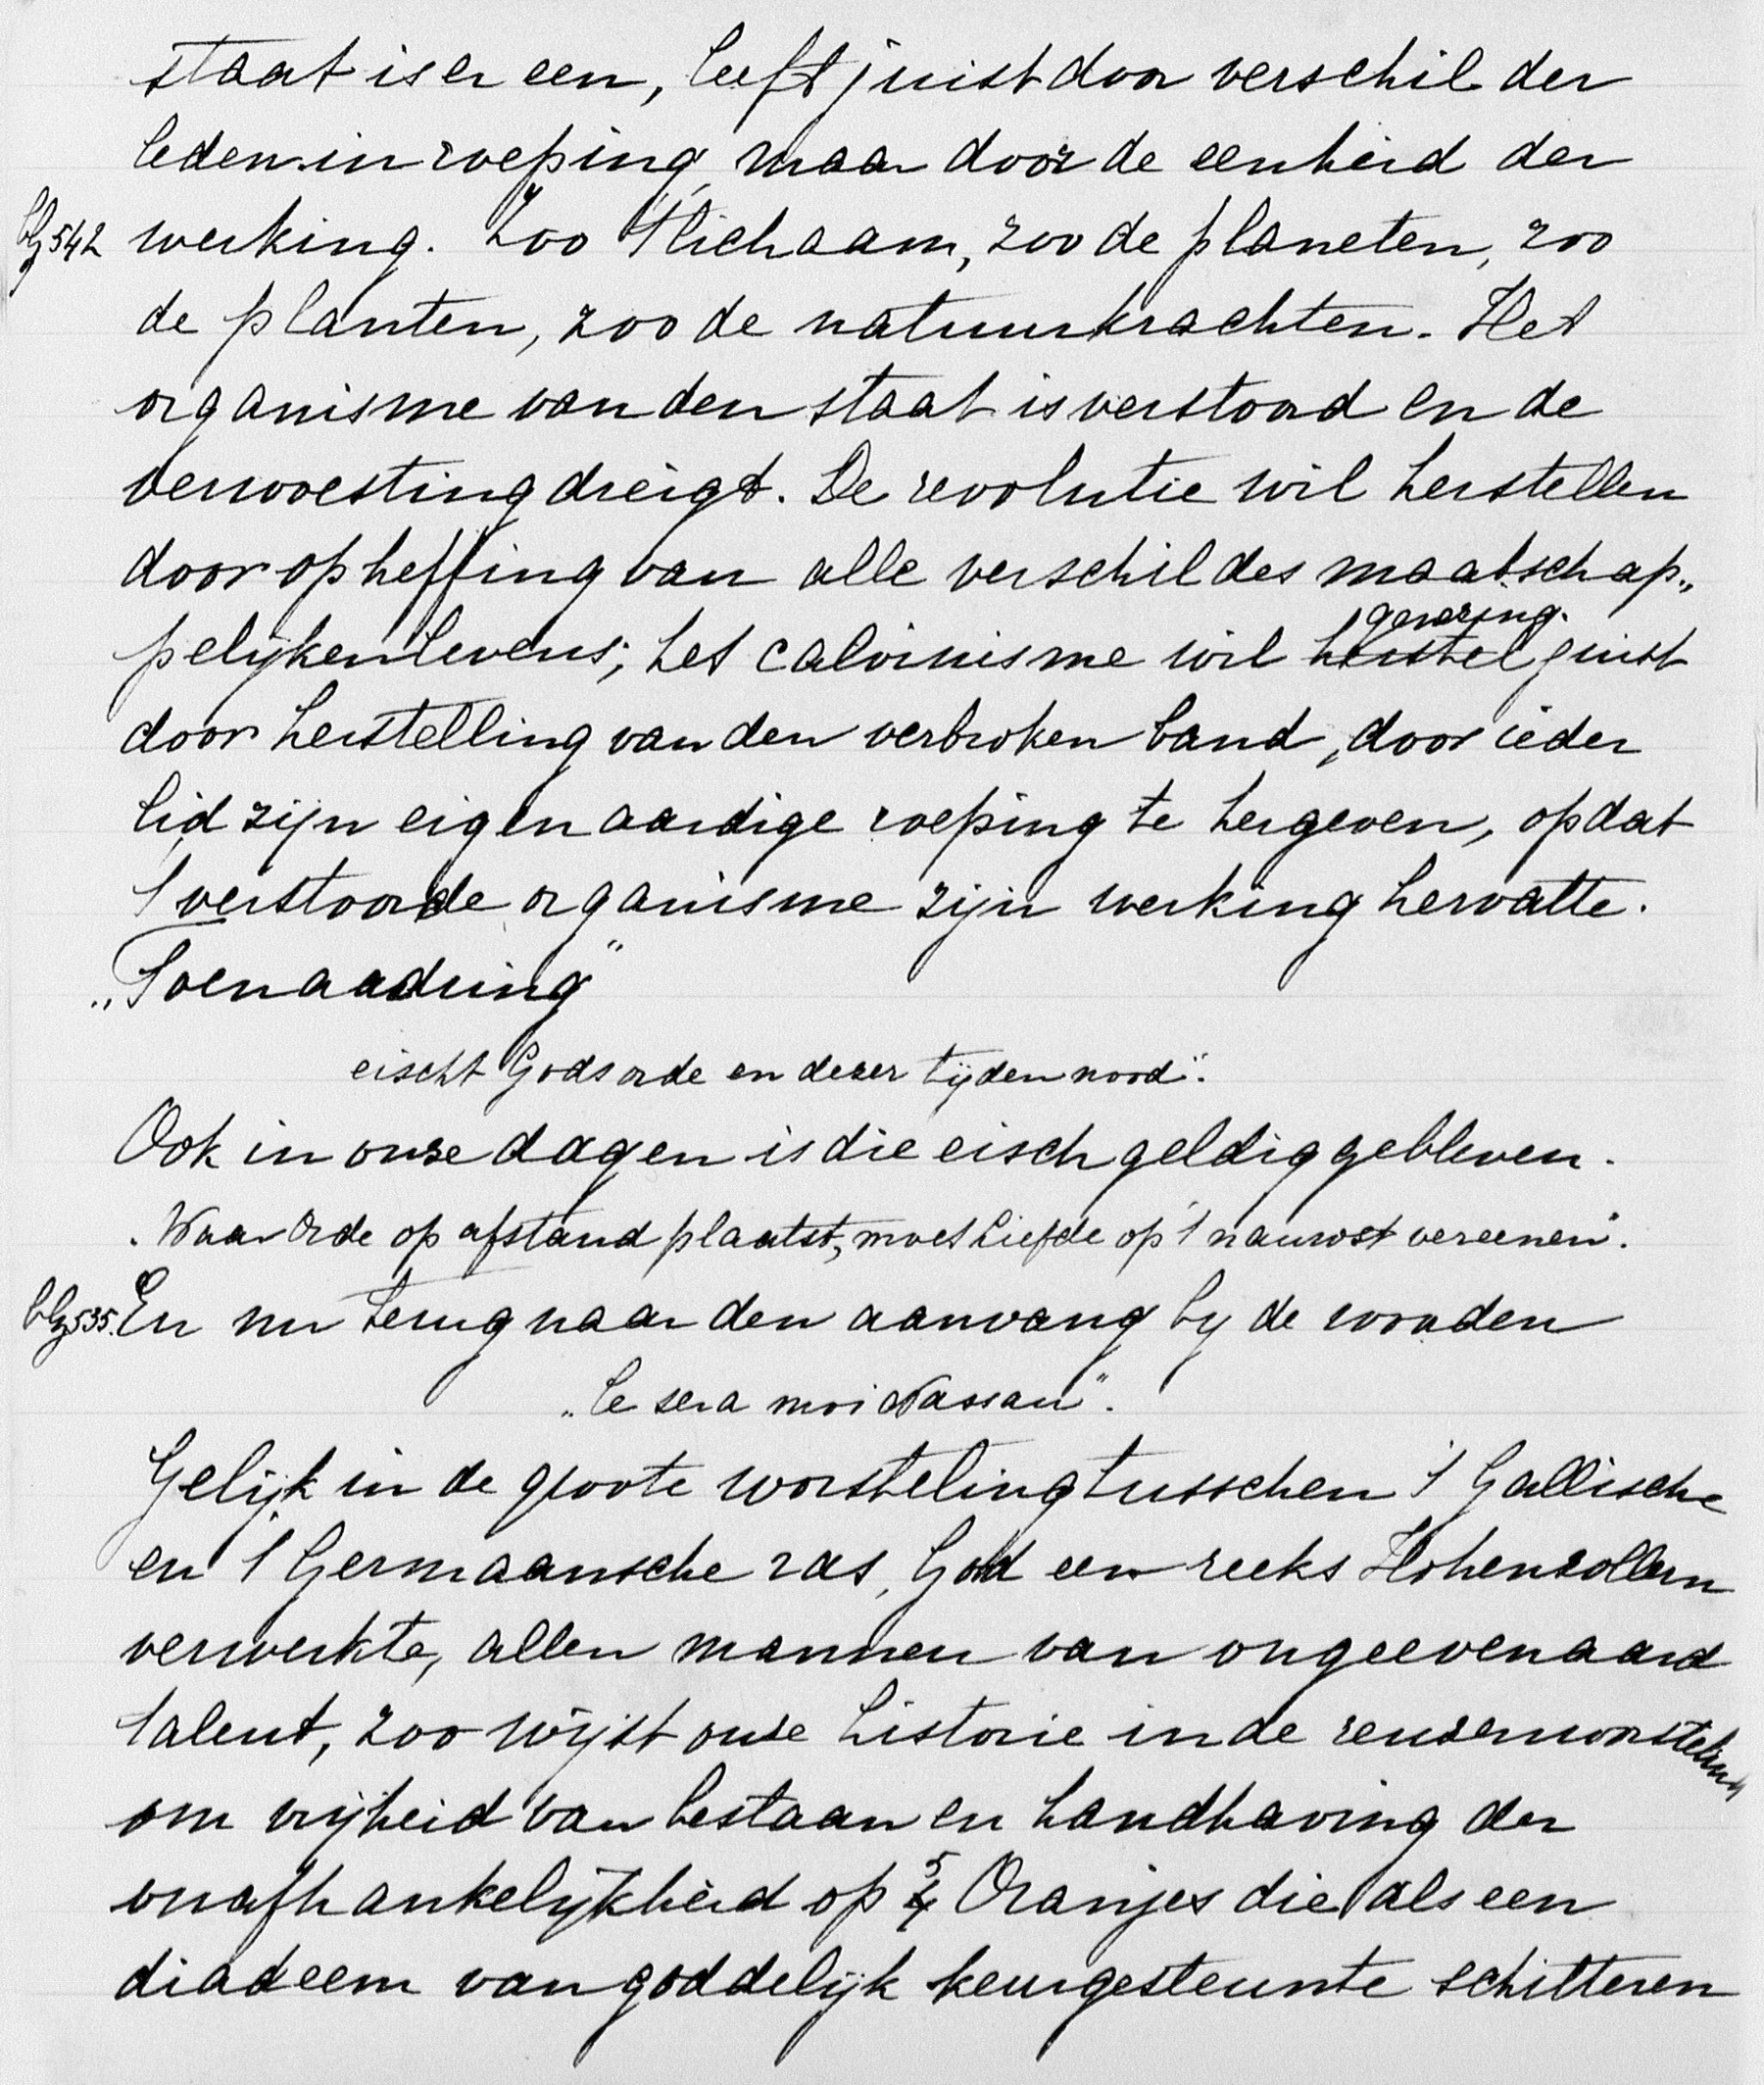 staat is er een, leeft juist door verschil der
leden in roeping, maar door de eenheid der
blz 542 werking. Zoo 't lichaam, zoo de planeten, zoo
de planten, zoo de natuurkrachten. Het
organisme van den staat is verstoord en de
verwoesting dreigt. De revolutie wil herstellen
door opheffing van alle verschil des maatschap„
genezing.
pelijken levens; het calvinisme wil herstel juist
door herstelling van den verbroken band, door ieder
lid zijn eigenaardige roeping te hergeven, opdat
't verstoorde organisme zijn werking hervatte.
„Toenaadring"
eischt Gods orde en dezer tijden nood".
Ook in onze dagen is die eisch geldig gebleven.
„Waar Orde op afstand plaatst, moet Liefde op 't nauwst vereenen".
blz 535. En nu terug naar den aanvang by de woorden
„Ce sera moi Nassau".
Gelijk in de groote worsteling tusschen 't Gallische
en 't Germaansche ras, God een reeks Hohenzollern
verwekte, allen mannen van ongeevenaard
talent, zoo wijst onze historie in de reuzenworsteling
om vrijheid van bestaan en handhaving der
5
onafhankelijkheid op 4 Oranjes die als een
diadeem van goddelijk keurgesteunte schitteren